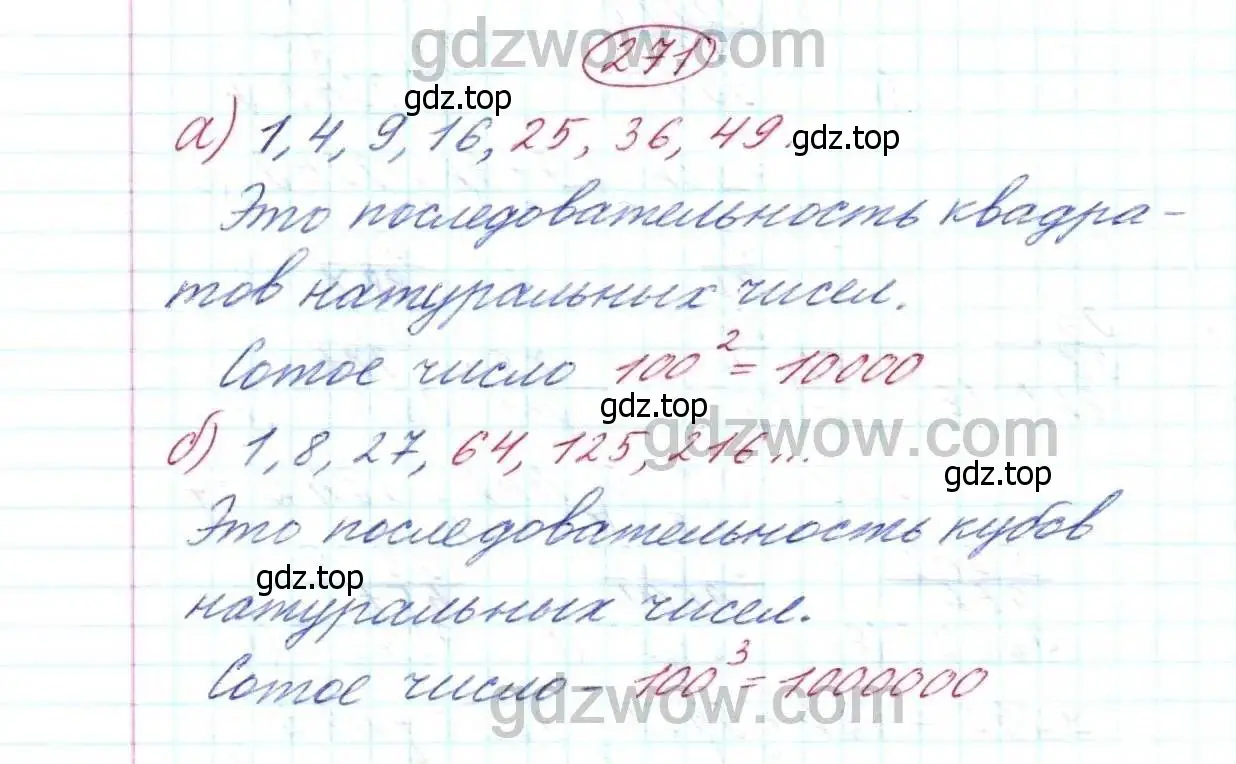 gdzwow.com
271
gdz.top
а) 1, 4, 9, 16, 25, 36, 49.
gdz.top
Это последовательность квадра-
тов натуральных чисел.
Сотое число 100² = 10000
gdz.top
gdzwow.com
б) 1, 8, 27, 64, 125, 216...
gdz.top
Это последовательность кубов
gdz.top
натуральных чисел.
Сотое число - 100³ = 1000000
gdzwow.com